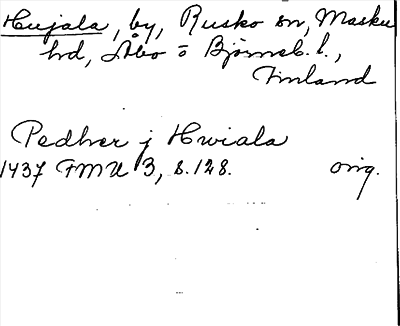 Hujala, by, Rusko sn, Masku
hd, Åbo o Björneb. l.,
Finland
Pedher j Hwiala
1437 FMU 3, s. 128. orig.